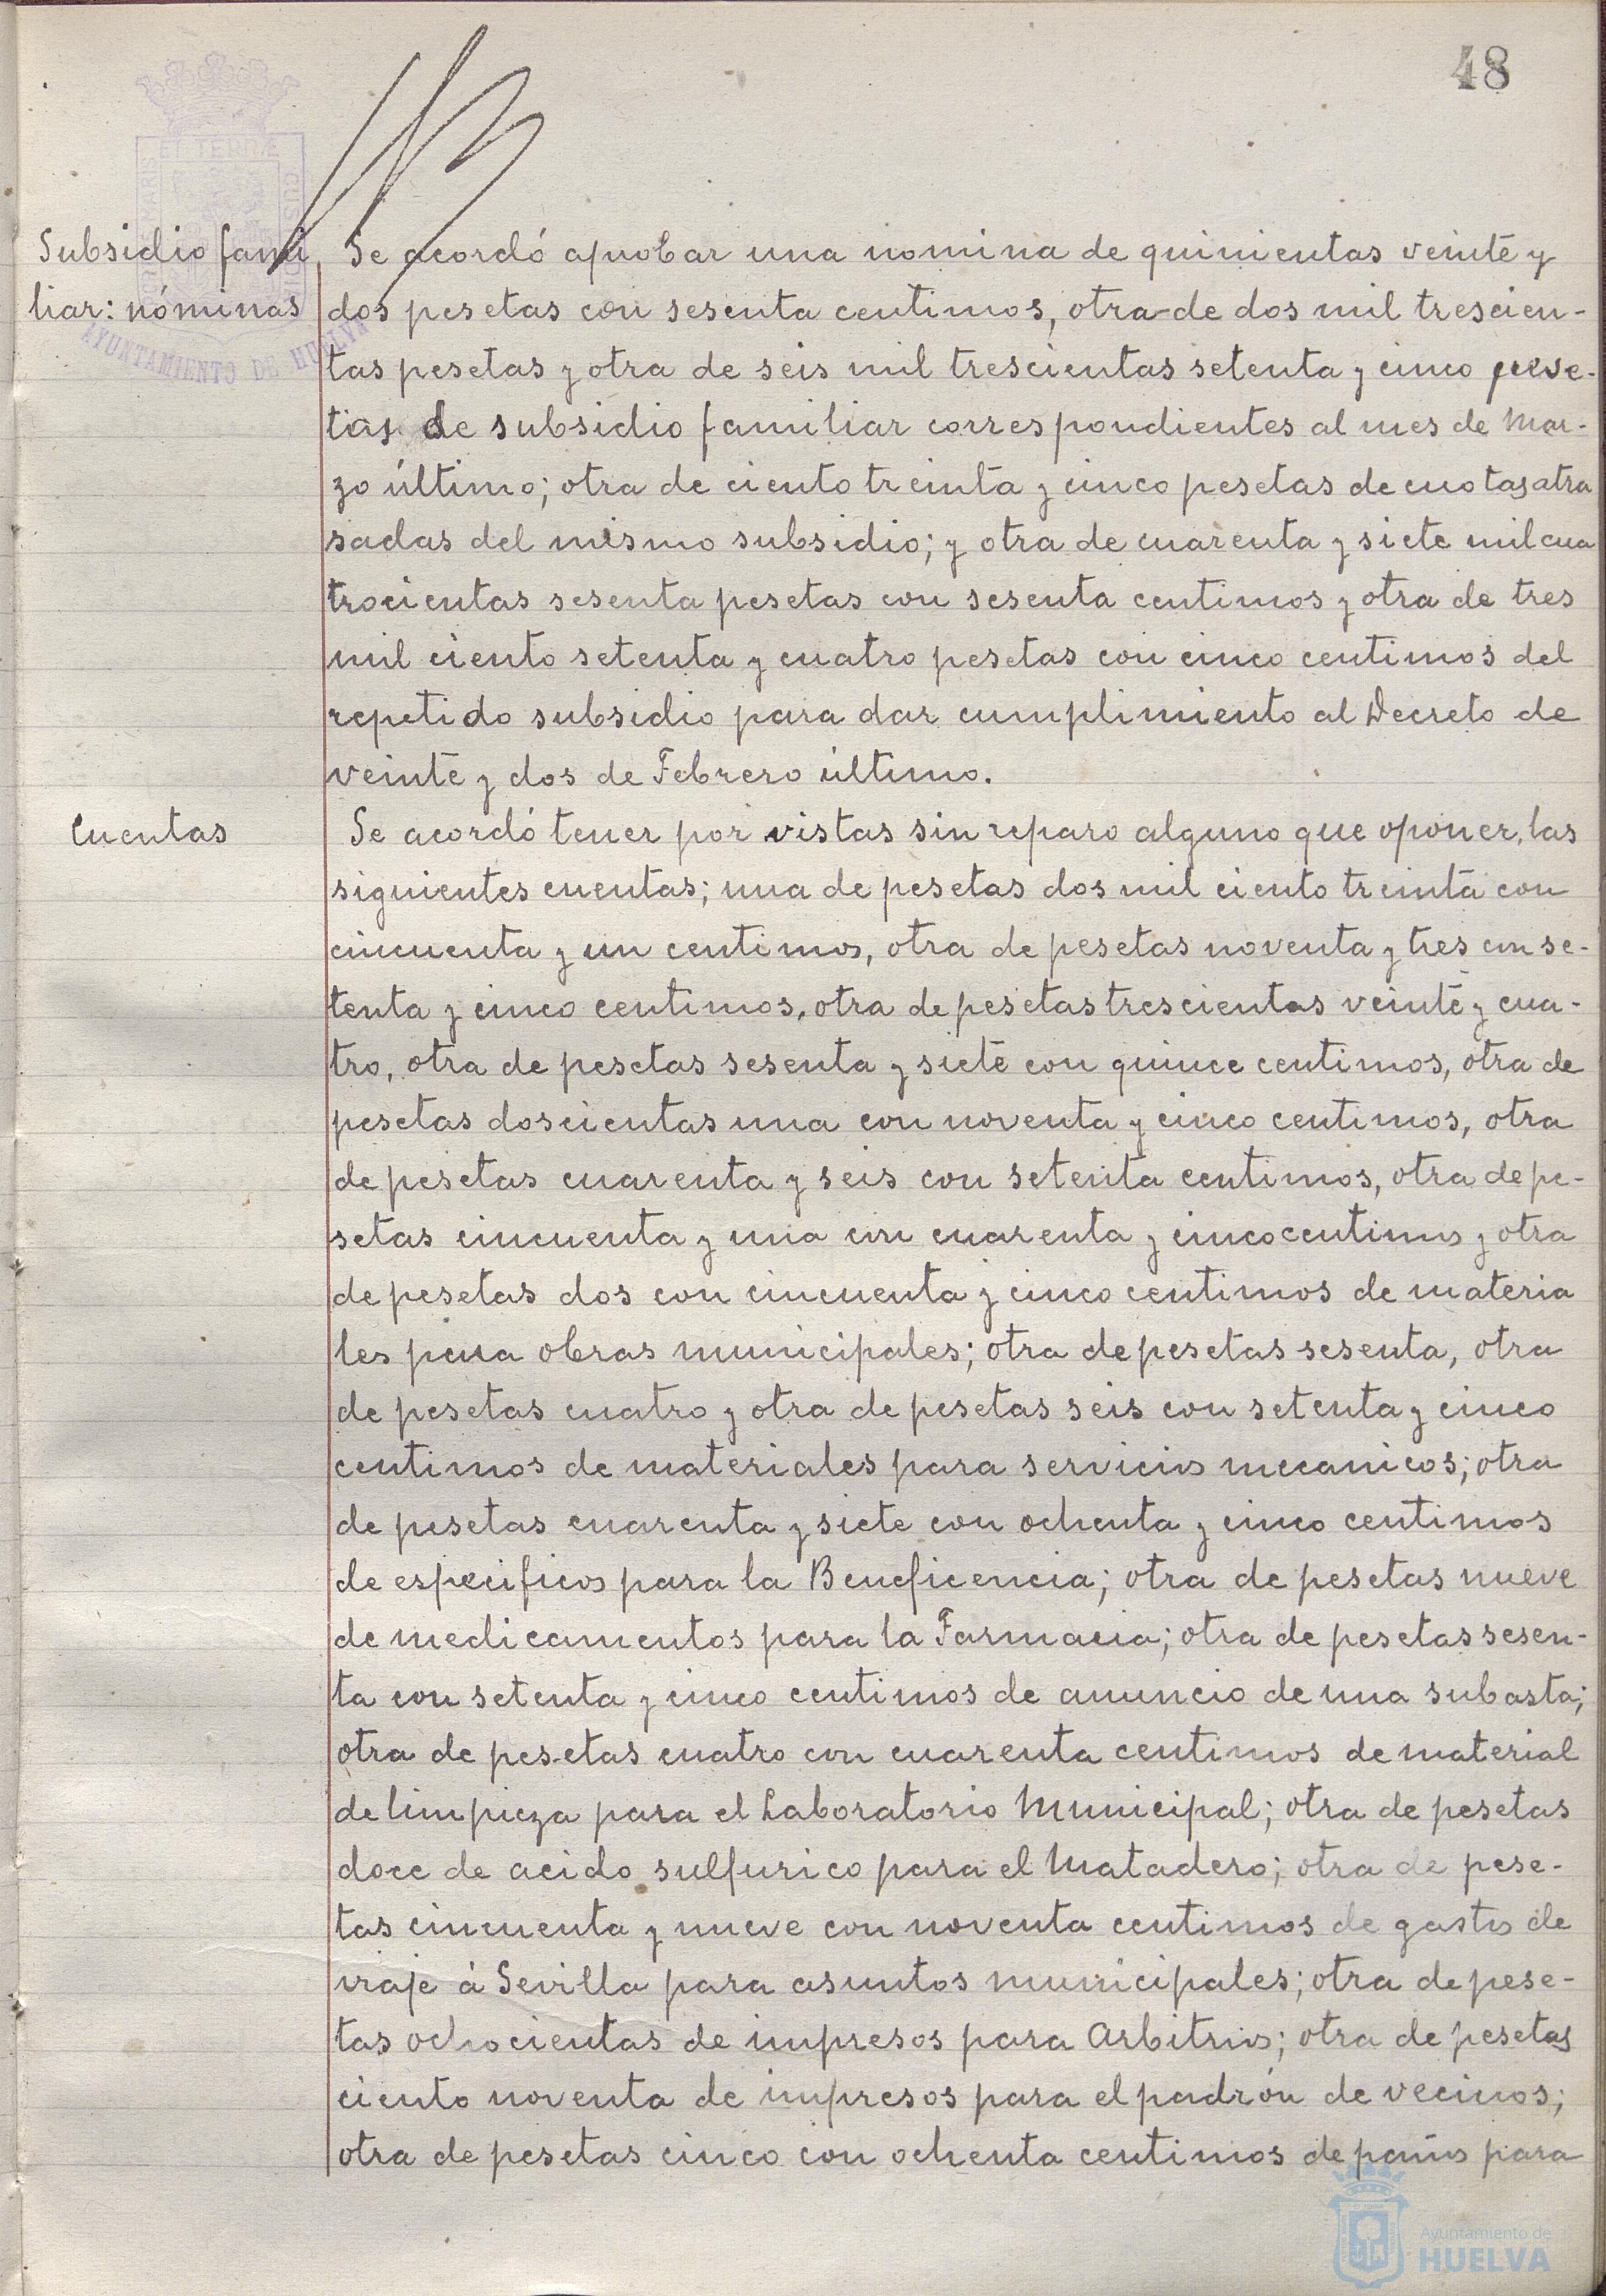 48
Subsidio fami
liar: nóminas
Se acordó aprobar una nomina de quinientas veinte y
dos pesetas con sesenta centimos, otra de dos mil trescien-
tas pesetas y otra de seis mil trescientas setenta y cinco pese-
tas de subsidio familiar correspondientes al mes de Mar-
zo último; otra de ciento treinta y cinco pesetas de cuotas atra
sadas del mismo subsidio; y otra de cuarenta y siete mil cua
trocientas sesenta pesetas con sesenta centimos y otra de tres
mil ciento setenta y cuatro pesetas con cinco centimos del
repetido subsidio para dar cumplimiento al Decreto de
veinte y dos de Febrero último.
Cuentas
Se acordó tener por vistas sin reparo alguno que oponer, las
siguientes cuentas; una de pesetas dos mil ciento treinta con
cincuenta y un centimos, otra de pesetas noventa y tres con se-
tenta y cinco centimos, otra de pesetas trescientas veinte y cua-
tro, otra de pesetas sesenta y siete con quince centimos, otra de
pesetas doscientas una con noventa y cinco centimos, otra
de pesetas cuarenta y seis con setenta centimos, otra de pe-
setas cincuenta y una con cuarenta y cinco centimos y otra
de pesetas dos con cincuenta y cinco centimos de materia
les para obras municipales; otra de pesetas sesenta, otra
de pesetas cuatro y otra de pesetas seis con setenta y cinco
centimos de materiales para servicios mecanicos; otra
de pesetas cuarenta y siete con ochenta y cinco centimos
de especificos para la Beneficencia; otra de pesetas nueve
de medicamentos para la Farmacia; otra de pesetas sesen-
ta con setenta y cinco centimos de anuncio de una subasta;
otra de pesetas cuatro con cuarenta centimos de material
de limpieza para el Laboratorio Municipal; otra de pesetas
doce de acido sulfurico para el Matadero; otra de pese-
tas cincuenta y nueve con noventa centimos de gastos de
viaje á Sevilla para asuntos municipales; otra de pese-
tas ochocientas de impresos para Arbitrios; otra de pesetas
ciento noventa de impresos para el padrón de vecinos;
otra de pesetas cinco con ochenta centimos de paños para
AYUNTAMIENTO DE HUELVA
Ayuntamiento de
HUELVA